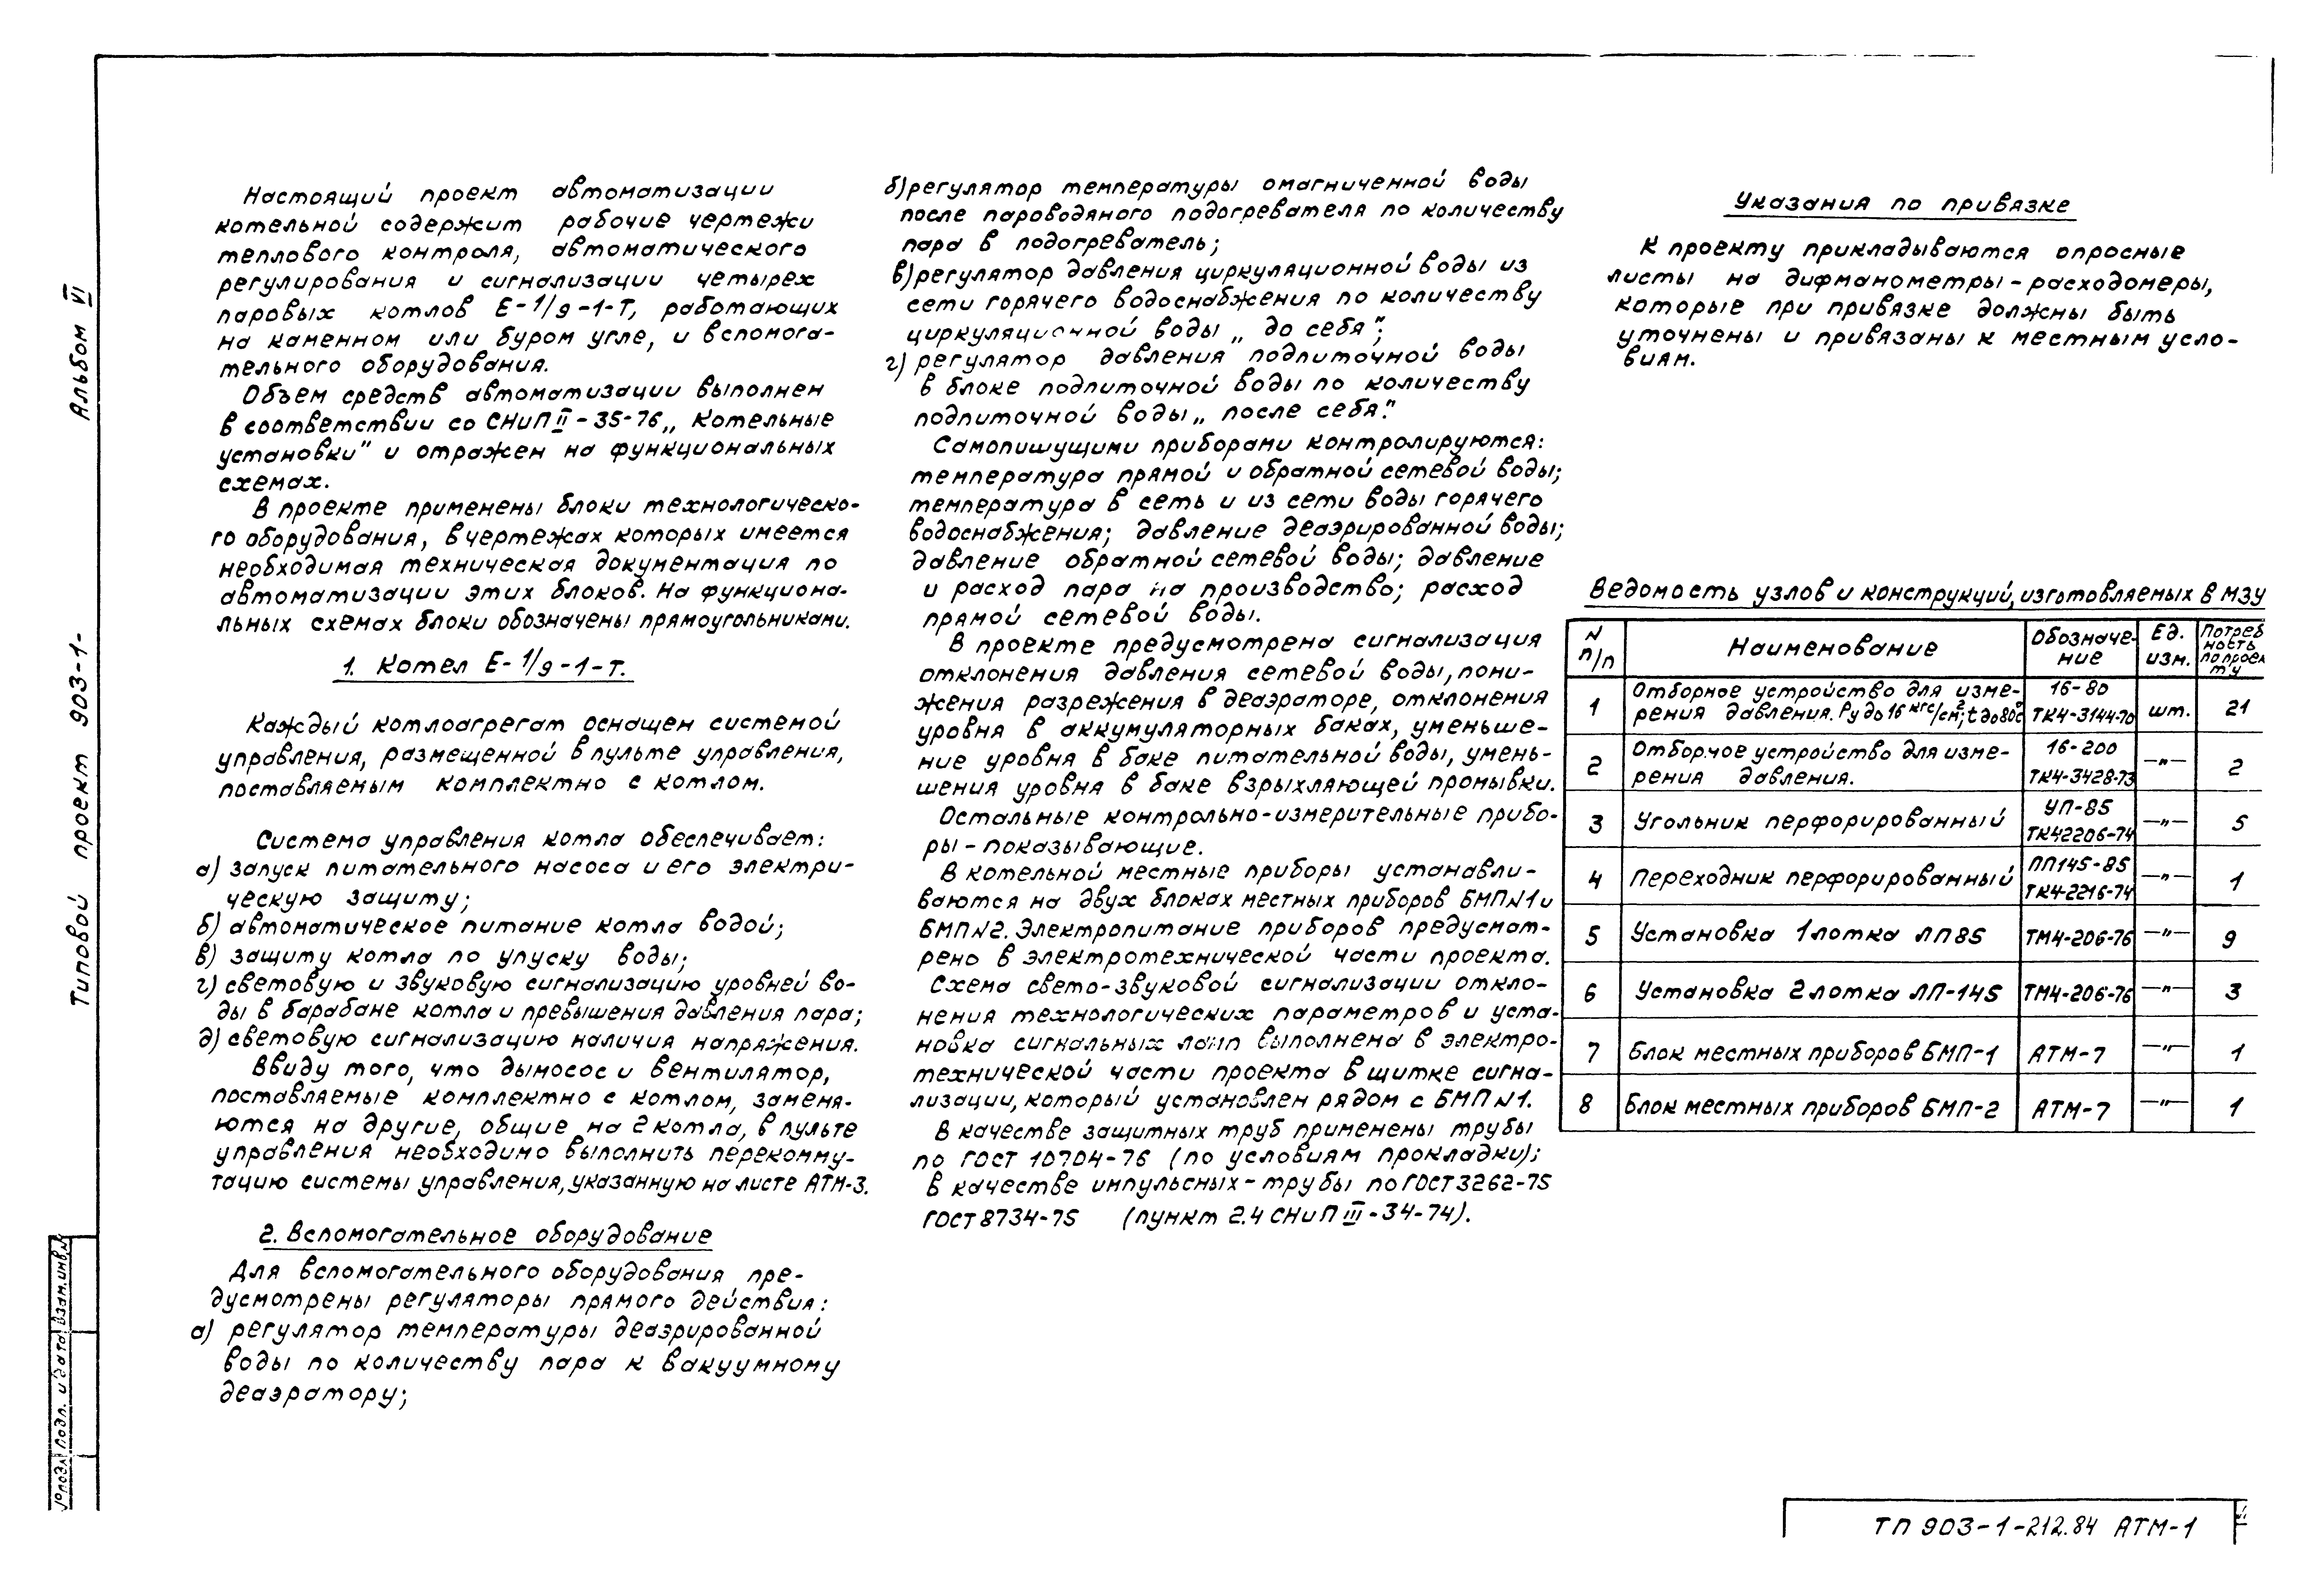 Альбом VI
Типовой проект 903-1-
Настоящий проект автоматизации
котельной содержит рабочие чертежи
теплового контроля, автоматического
регулирования и сигнализации четырех
паровых котлов Е-1/9-1-Т, работающих
на каменном или буром угле, и вспомога-
тельного оборудования.
Объем средств автоматизации выполнен
в соответствии со СНиП II-35-76 „Котельные
установки" и отражен на функциональных
схемах.
В проекте применены блоки технологическо-
го оборудования, в чертежах которых имеется
необходимая техническая документация по
автоматизации этих блоков. На функциона-
льных схемах блоки обозначены прямоугольниками.
1. Котел Е-1/9-1-Т.
Каждый котлоагрегат оснащен системой
управления, размещенной в пульте управления,
поставляемым комплектно с котлом.
Система управления котла обеспечивает:
а) запуск питательного насоса и его электри-
ческую защиту;
б) автоматическое питание котла водой;
в) защиту котла по упуску воды;
г) световую и звуковую сигнализацию уровней во-
ды в барабане котла и превышения давления пара;
д) световую сигнализацию наличия напряжения.
Ввиду того, что дымосос и вентилятор,
поставляемые комплектно с котлом, заменя-
ются на другие, общие на 2 котла, в пульте
управления необходимо выполнить перекомму-
тацию системы управления, указанную на листе АТМ-3.
2. Вспомогательное оборудование
Для вспомогательного оборудования пре-
дусмотрены регуляторы прямого действия:
а) регулятор температуры деаэрированной
воды по количеству пара к вакуумному
деаэратору;
б) регулятор температуры омагниченной воды
после пароводяного подогревателя по количеству
пара в подогреватель;
в) регулятор давления циркуляционной воды из
сети горячего водоснабжения по количеству
циркуляционной воды „до себя";
г) регулятор давления подпиточной воды
в блоке подпиточной воды по количеству
подпиточной воды „после себя".
Самопишущими приборами контролируются:
температура прямой и обратной сетевой воды;
температура в сеть и из сети воды горячего
водоснабжения; давление деаэрированной воды;
давление обратной сетевой воды; давление
и расход пара на производство; расход
прямой сетевой воды.
В проекте предусмотрена сигнализация
отклонения давления сетевой воды, пони-
жения разрежения в деаэраторе, отклонения
уровня в аккумуляторных баках, уменьше-
ние уровня в баке питательной воды, умень-
шения уровня в баке взрыхляющей промывки.
Остальные контрольно-измерительные прибо-
ры - показывающие.
В котельной местные приборы устанавли-
ваются на двух блоках местных приборов БМП N1 и
БМП N2. Электропитание приборов предусмот-
рено в электротехнической части проекта.
Схема свето-звуковой сигнализации откло-
нения технологических параметров и уста-
новка сигнальных ламп выполнена в электро-
технической части проекта в щитке сигна-
лизации, который установлен рядом с БМП N1.
В качестве защитных труб применены трубы
по ГОСТ 10704-76 (по условиям прокладки);
в качестве импульсных - трубы по ГОСТ 3262-75
ГОСТ 8734-75 (пункт 2.4 СНиП III-34-74).
Указания по привязке
К проекту прикладываются опросные
листы на дифманометры-расходомеры,
которые при привязке должны быть
уточнены и привязаны к местным усло-
виям.
Ведомость узлов и конструкций, изготовляемых в МЗУ
N п/п Наименование Обозначе-ние Ед. изм. Потреб ность по проек ту
1 Отборное устройство для изме- 16-80
рения давления. Ру до 16 кгс/см²; t до 80°С ТК4-3144-70 шт. 21
2 Отборное устройство для изме- 16-200 —"— 2
рения давления. ТК4-3428-73
3 Угольник перфорированный УП-85 —"— 5
ТК42206-74
4 Переходник перфорированный ПП145-85 —"— 1
ТК4-2216-74
5 Установка 1 лотка ЛП85 ТМ4-206-76 —"— 9
6 Установка 2 лотка ЛП-145 ТМ4-206-76 —"— 3
7 Блок местных приборов БМП-1 АТМ-7 —"— 1
8 Блок местных приборов БМП-2 АТМ-7 —"— 1
Взам.инв.№
Подп. и дата
№подл
ТП 903-1-212.84 АТМ-1